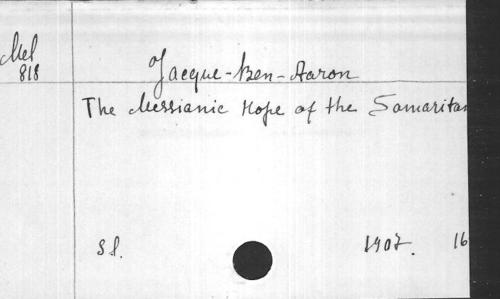 Mel
818
Jacque-Ben-Aaron
The Messianic Hope of the Samaritan
S.l. 1907. 16